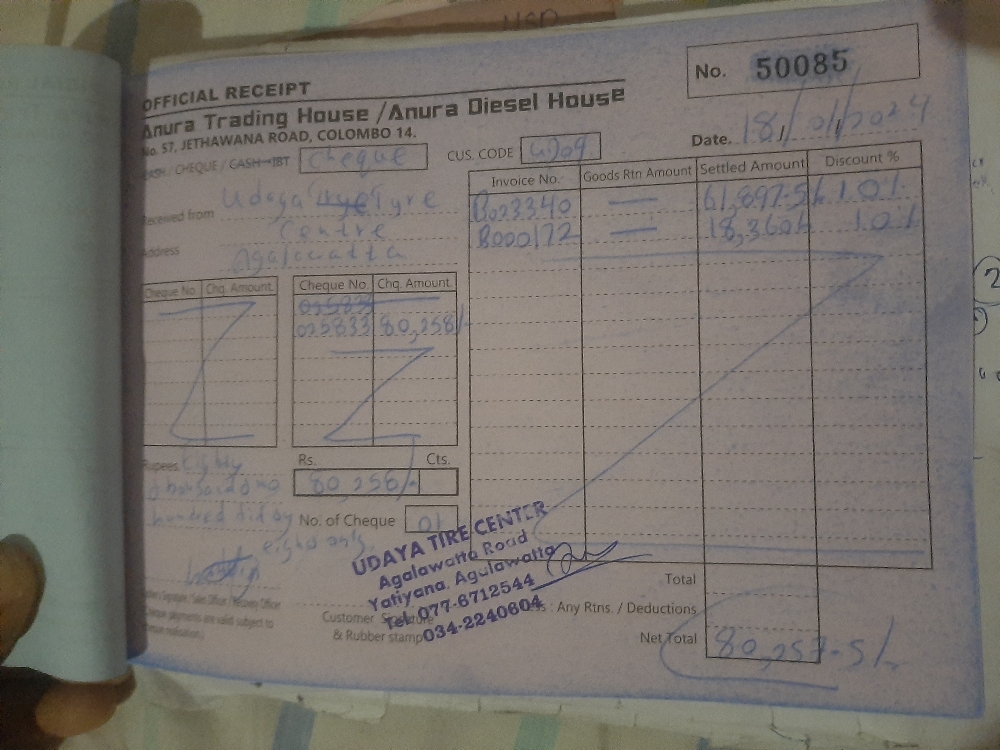 OFFICIAL RECEIPT
No. 50085
Anura Trading House / Anura Diesel House
No. 57, JETHAWANA ROAD, COLOMBO 14.
Date. 18/01/2024
CASH / CHEQUE / CASH IBT Cheque
CUS. CODE
Received from Udaya Tyre
Centre
Address Agalawatta
Invoice No. Goods Rtn Amount Settled Amount Discount %
B023340 — 61,897.5/- 10%
B000172 — 18,360/- 10%
Cheque No. Chq. Amount
Cheque No. Chq. Amount
025833 80,258/-
Rupees Eighty
thousand two
hundred fifty
eight only
Rs. Cts.
80,258/-
No. of Cheque 01
UDAYA TIRE CENTER
Agalawatta Road
Yatiyana, Agalawatta
Tel: 077-6712544
034-2240604
Customer Signature
& Rubber stamp
Total
Less : Any Rtns. / Deductions
Net Total 80,257.5/-